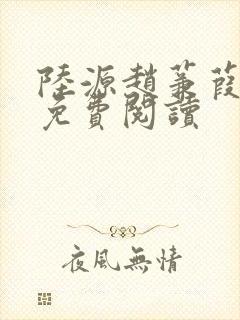 陸源趙蒹葭
免費閱讀
夜風無情